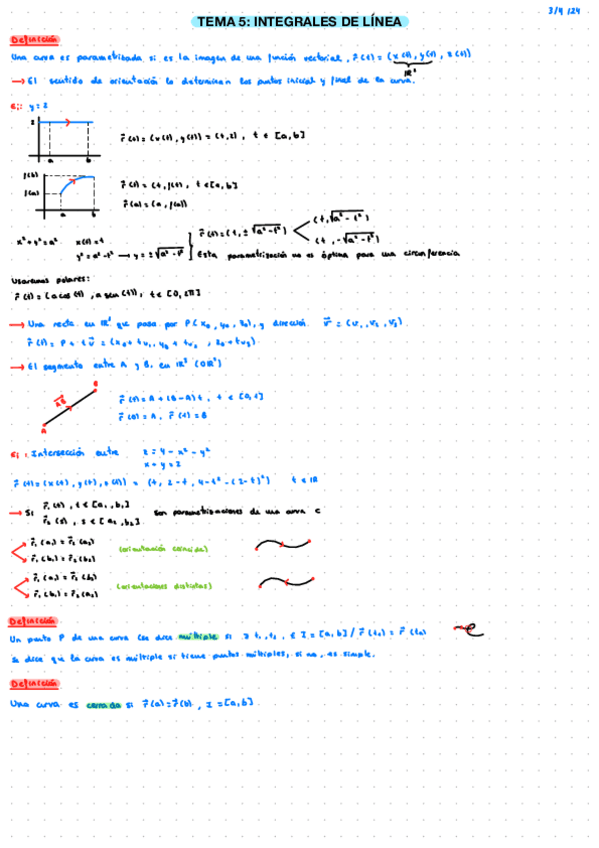 3/4/24
TEMA 5: INTEGRALES DE LÍNEA
Definición
Una curva es parametrizada si es la imagen de una función vectorial, r⃗(t) = (x(t), y(t), z(t))
ℝ³
→ El sentido de orientación lo determinan los puntos inicial y final de la curva.
Ej: y = 2
2
a b
r⃗(t) = (x(t), y(t)) = (t, 2), t ∈ [a, b]
f(b)
f(a)
a b
r⃗(t) = (t, f(t)), t ∈ [a, b]
r⃗(a) = (a, f(a))
x² + y² = a² x(t) = t
y² = a² - t² → y = ±√(a² - t²)
r⃗(t) = (t, ±√(a² - t²))
(t, √(a² - t²))
(t, -√(a² - t²))
Esta parametrización no es óptima para una circunferencia
Usaremos polares:
r⃗(t) = (a cos(t), a sen(t)), t ∈ [0, 2π]
→ Una recta en ℝ³ que pasa por P(x₀, y₀, z₀), y dirección v⃗ = (v₁, v₂, v₃).
r⃗(t) = P + t v⃗ = (x₀ + tv₁, y₀ + tv₂, z₀ + tv₃)
→ El segmento entre A y B, en ℝ³ (o ℝ²)
B
AB
A
r⃗(t) = A + (B - A)t, t ∈ [0, 1]
r⃗(0) = A, r⃗(1) = B
Ej: Intersección entre z = 4 - x² - y²
x + y = 2
r⃗(t) = (x(t), y(t), z(t)) = (t, 2 - t, 4 - t² - (2 - t)²) t ∈ ℝ
→ Si r⃗₁(t), t ∈ [a₁, b₁]
r⃗₂(s), s ∈ [a₂, b₂]
son parametrizaciones de una curva C
r⃗₁(a₁) = r⃗₂(a₂)
r⃗₁(b₁) = r⃗₂(b₂)
(orientación coincide)
r⃗₁(a₁) = r⃗₂(b₂)
r⃗₁(b₁) = r⃗₂(a₂)
(orientaciones distintas)
Definición
Un punto P de una curva C se dice múltiple si ∃ t₁, t₂, ∈ I = [a, b] / r⃗(t₁) = r⃗(t₂)
Se dice que la curva es múltiple si tiene puntos múltiples, si no, es simple.
Definición
Una curva es cerrada si r⃗(a) = r⃗(b), I = [a, b]